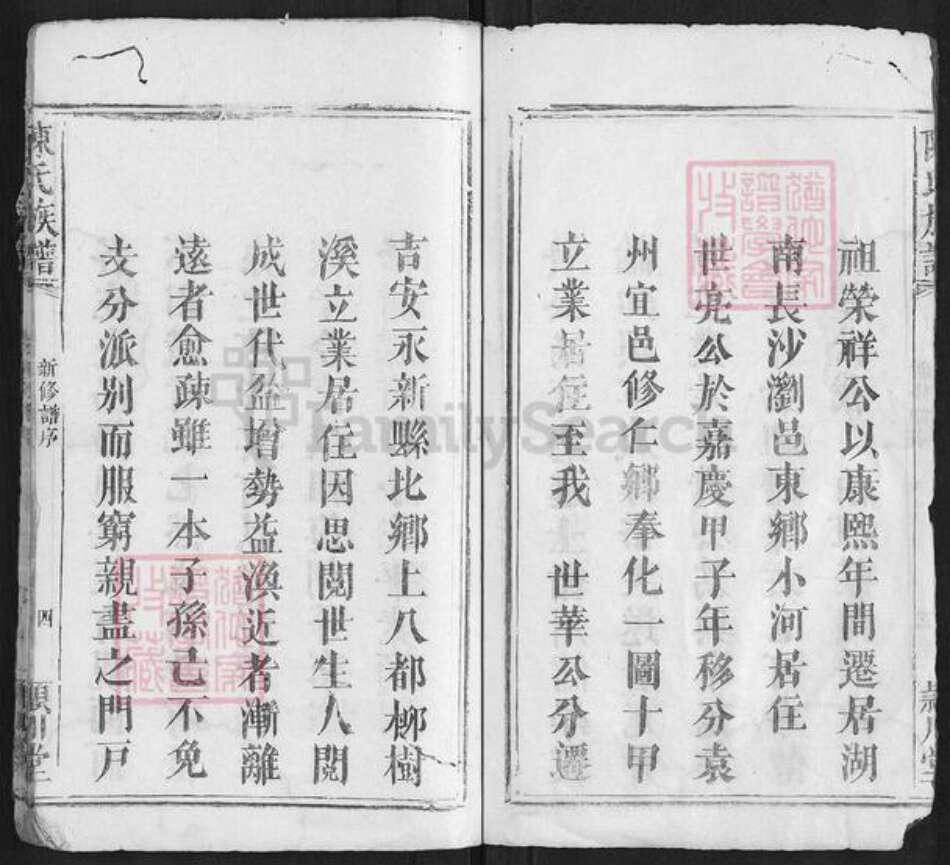 祖榮祥公以康熙年間遷居湖
南長沙瀏邑東鄉小河居住
世亮公於嘉慶甲子年移分袁
州宜邑修仁鄉奉化一圖十甲
立業居住至我　世華公分遷
吉安永新縣北鄉上八都柳樹
溪立業居住因思閱世生人閱
成世代益增勢益渙近者漸離
遠者愈疎雖一本子孫已不免
支分派别而服窮親盡之門戸
陳氏族譜
新修譜序
四
潁川堂
FamilySearch